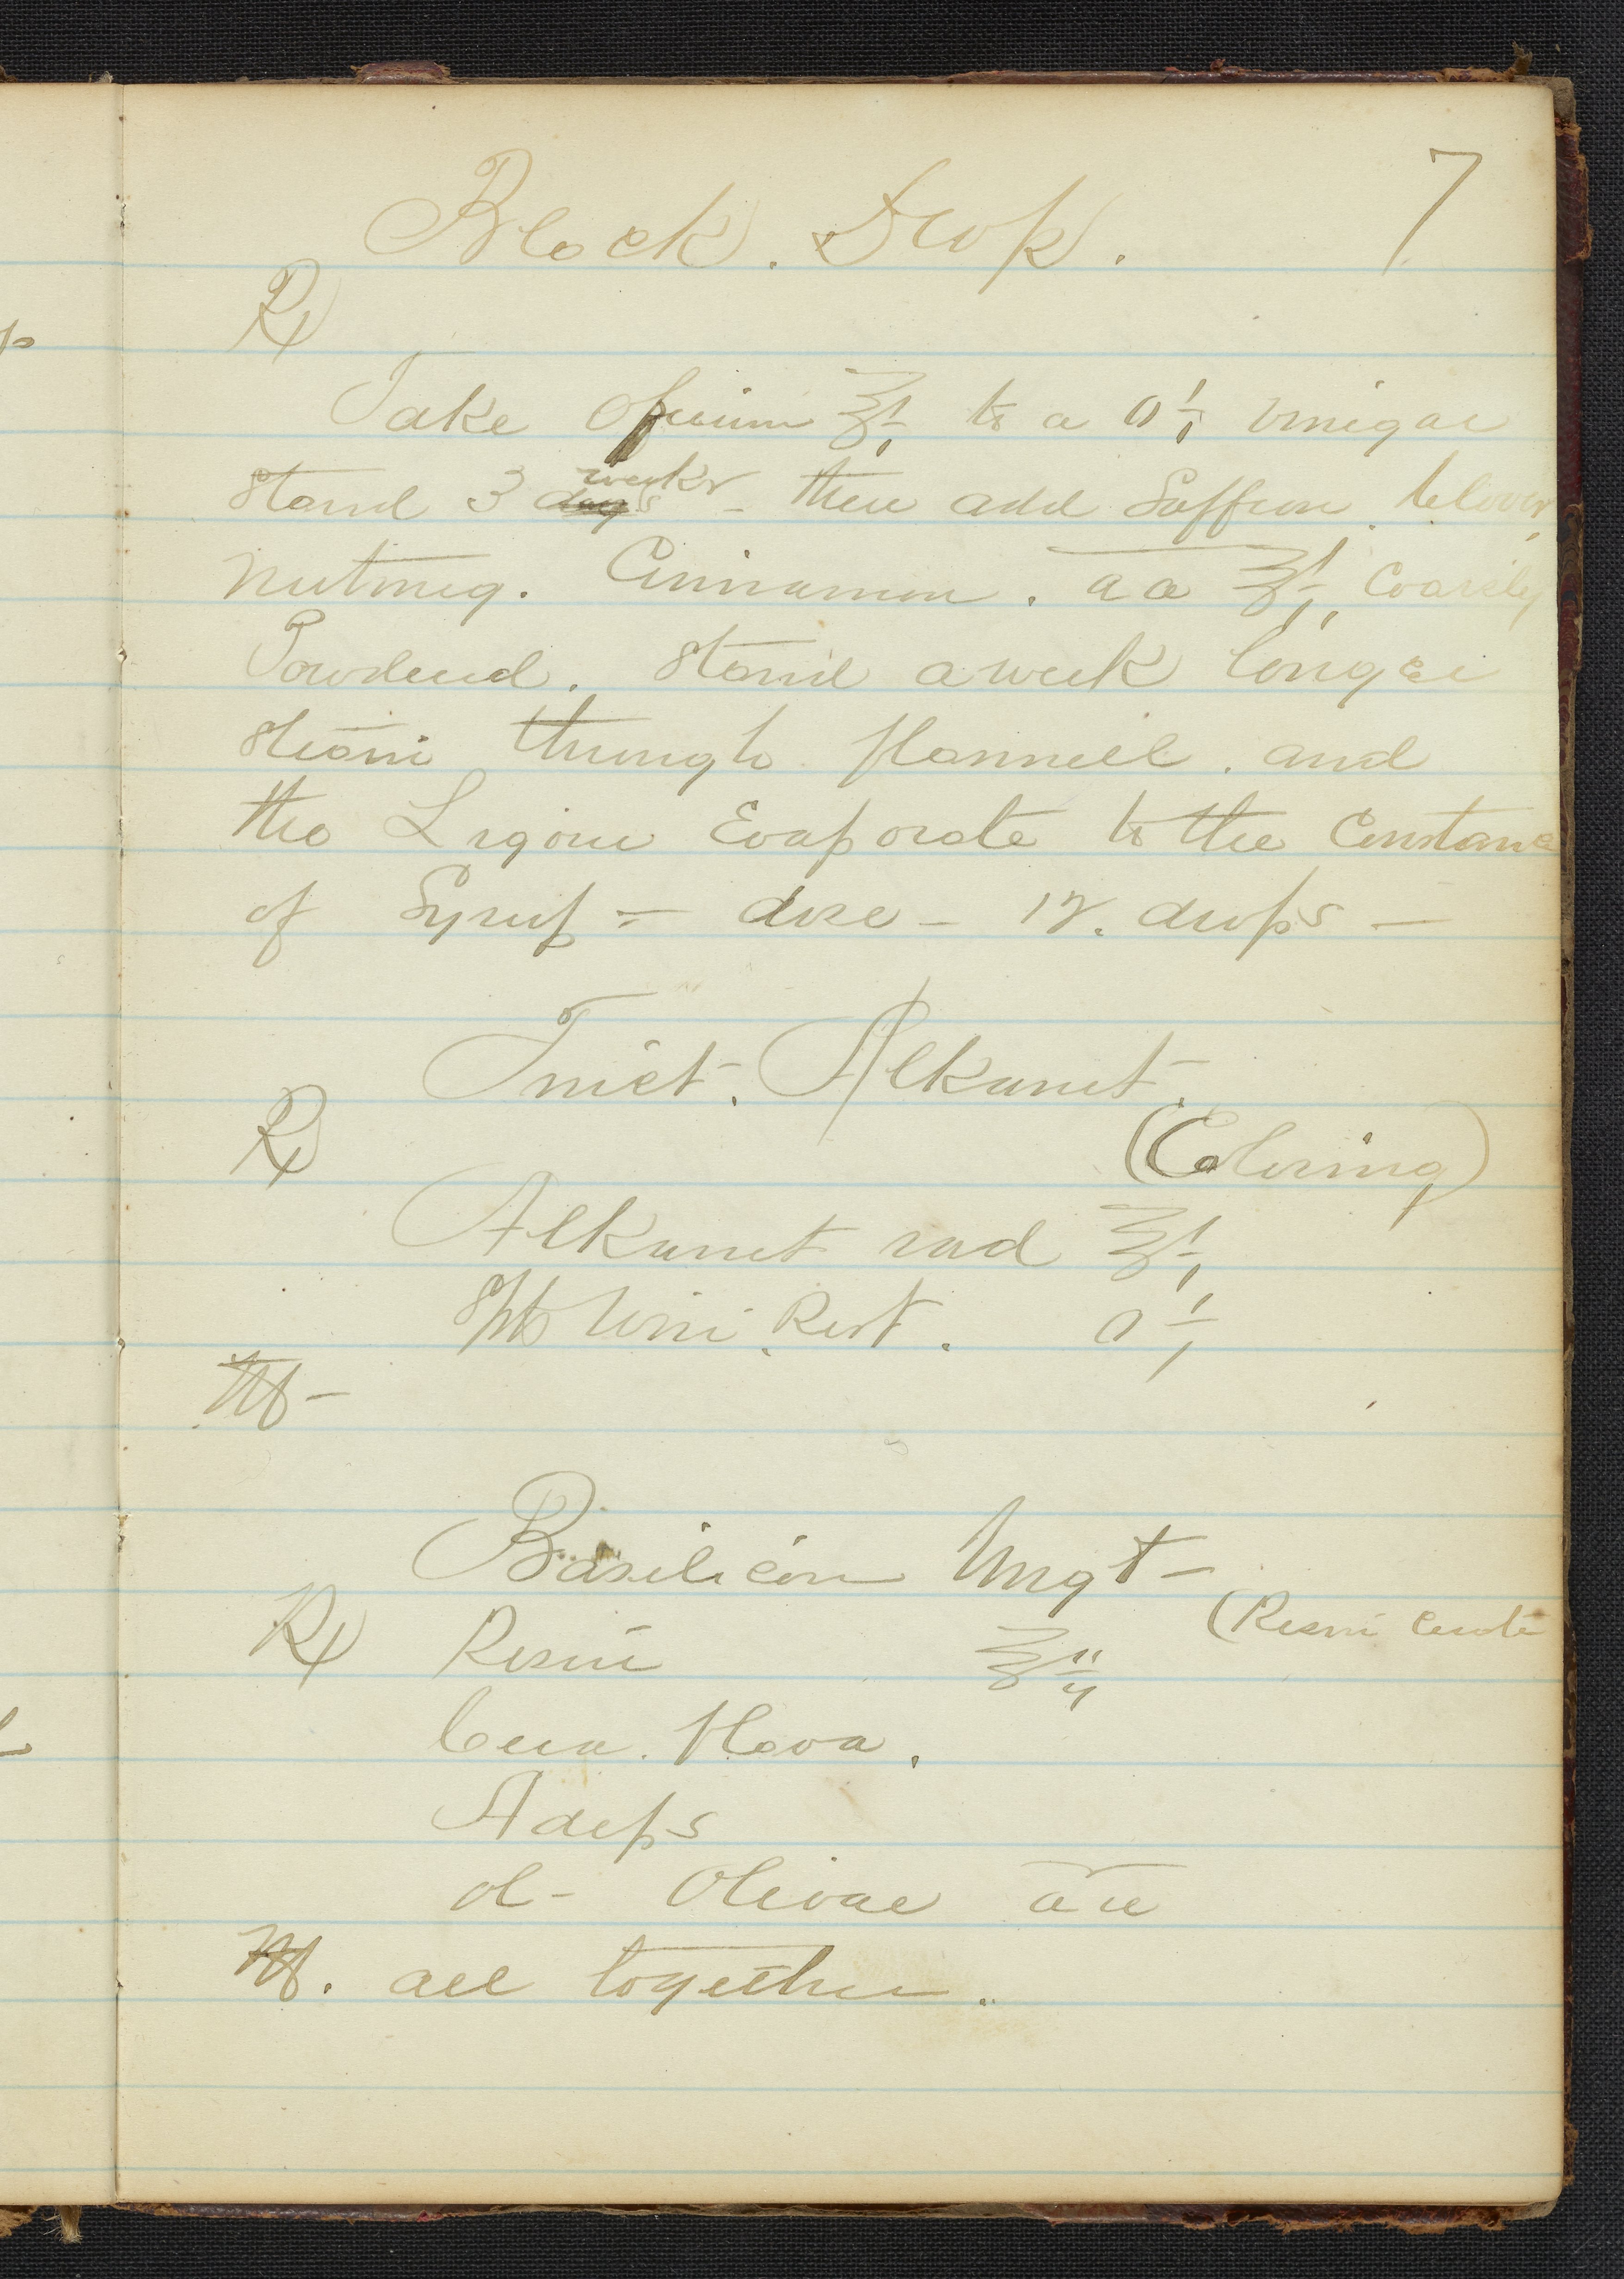 7
Black. Drop.
℞
Take Opium ℥i to a O i Vinigar
stand 3 weeks - then add Saffron. Cloves,
Nutmeg. Cinnamon. aa ℥i, Coarsly
Powdered. Stand a week longer
strain through flannell. and
the Liqour Evaporate to the Constance
of Syrup = dose - 12. drops -
Tinct. Alkanet.
℞ (Coloring)
Alkanet rad ℥i
Spts Vini. Rect. O i
M -
Basilicon Ungt -
(Resin Cerate
℞ Resin ℥ii
Cera. Flava.
Adeps
ol - Olivae aa
M. all together.